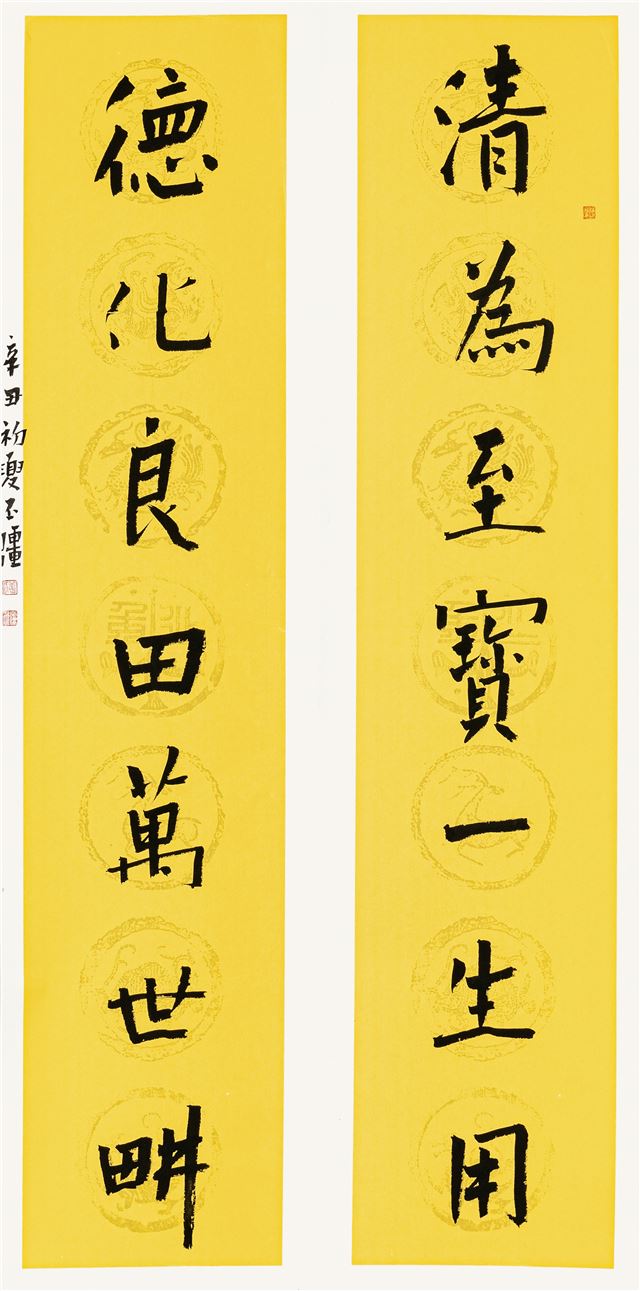 清為至寶一生用
德化良田萬世畊
辛丑初夏